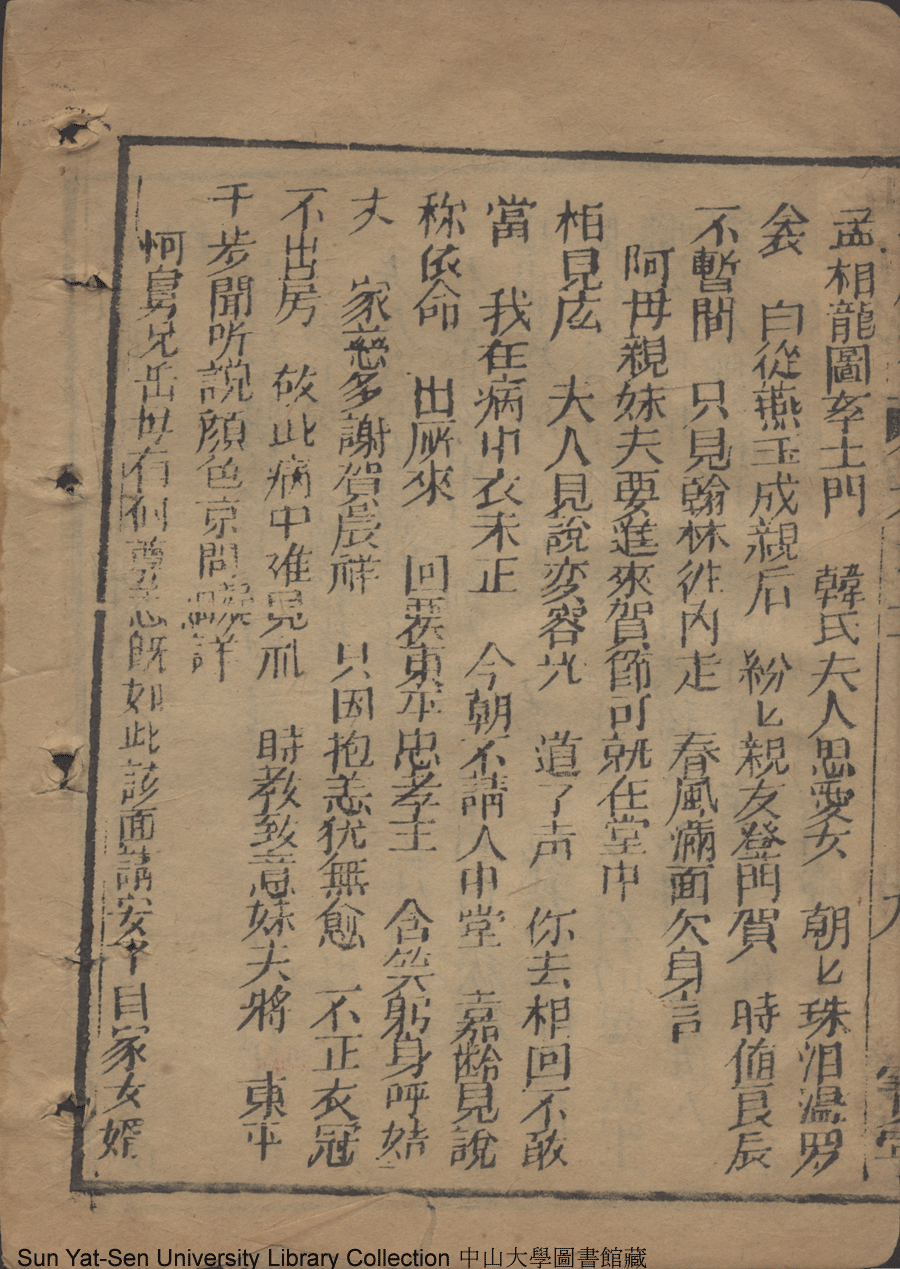 孟相龍圖李士門　韓氏夫人思愛女　朝匕珠泪濕罗
衾　自從燕玉成親后　紛匕親友登門賀　時値良辰
不暫間　只見翰林徃内走　春風滿面欠身言
阿母親妹夫要進來賀節可就在堂中
相見庅　夫人見說変容光　道了声　你去相回不敢
當　我在病中衣未正　今朝不請人中堂　嘉齡見說
称依命　出㕔來　回㚆東平忠孝王　含笑躬身呼姑
丈　家慈多謝賀辰祥　只因抱恙犹無愈　不正衣冠
不出房　故此病中难見礼　時教致意妹夫將　東平
千歩聞听說顔色京問端詳
呵舅兄岳母有何尊恙旣如此該面請安个自家女婿
九
Sun Yat-Sen University Library Collection 中山大學圖書館藏